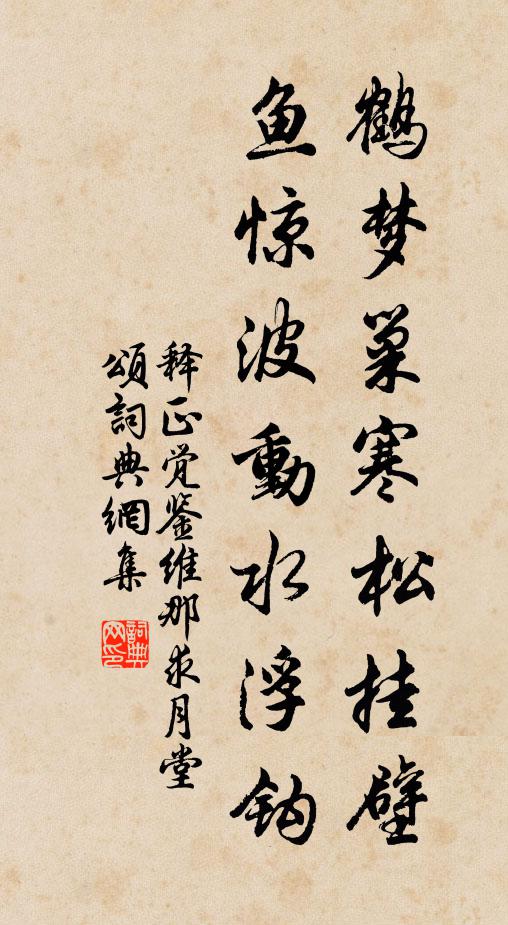 鹤梦巢寒松挂壁
鱼惊波動水浮钩
释正觉鉴维那求月堂
頌詞典網集
詞典
网印